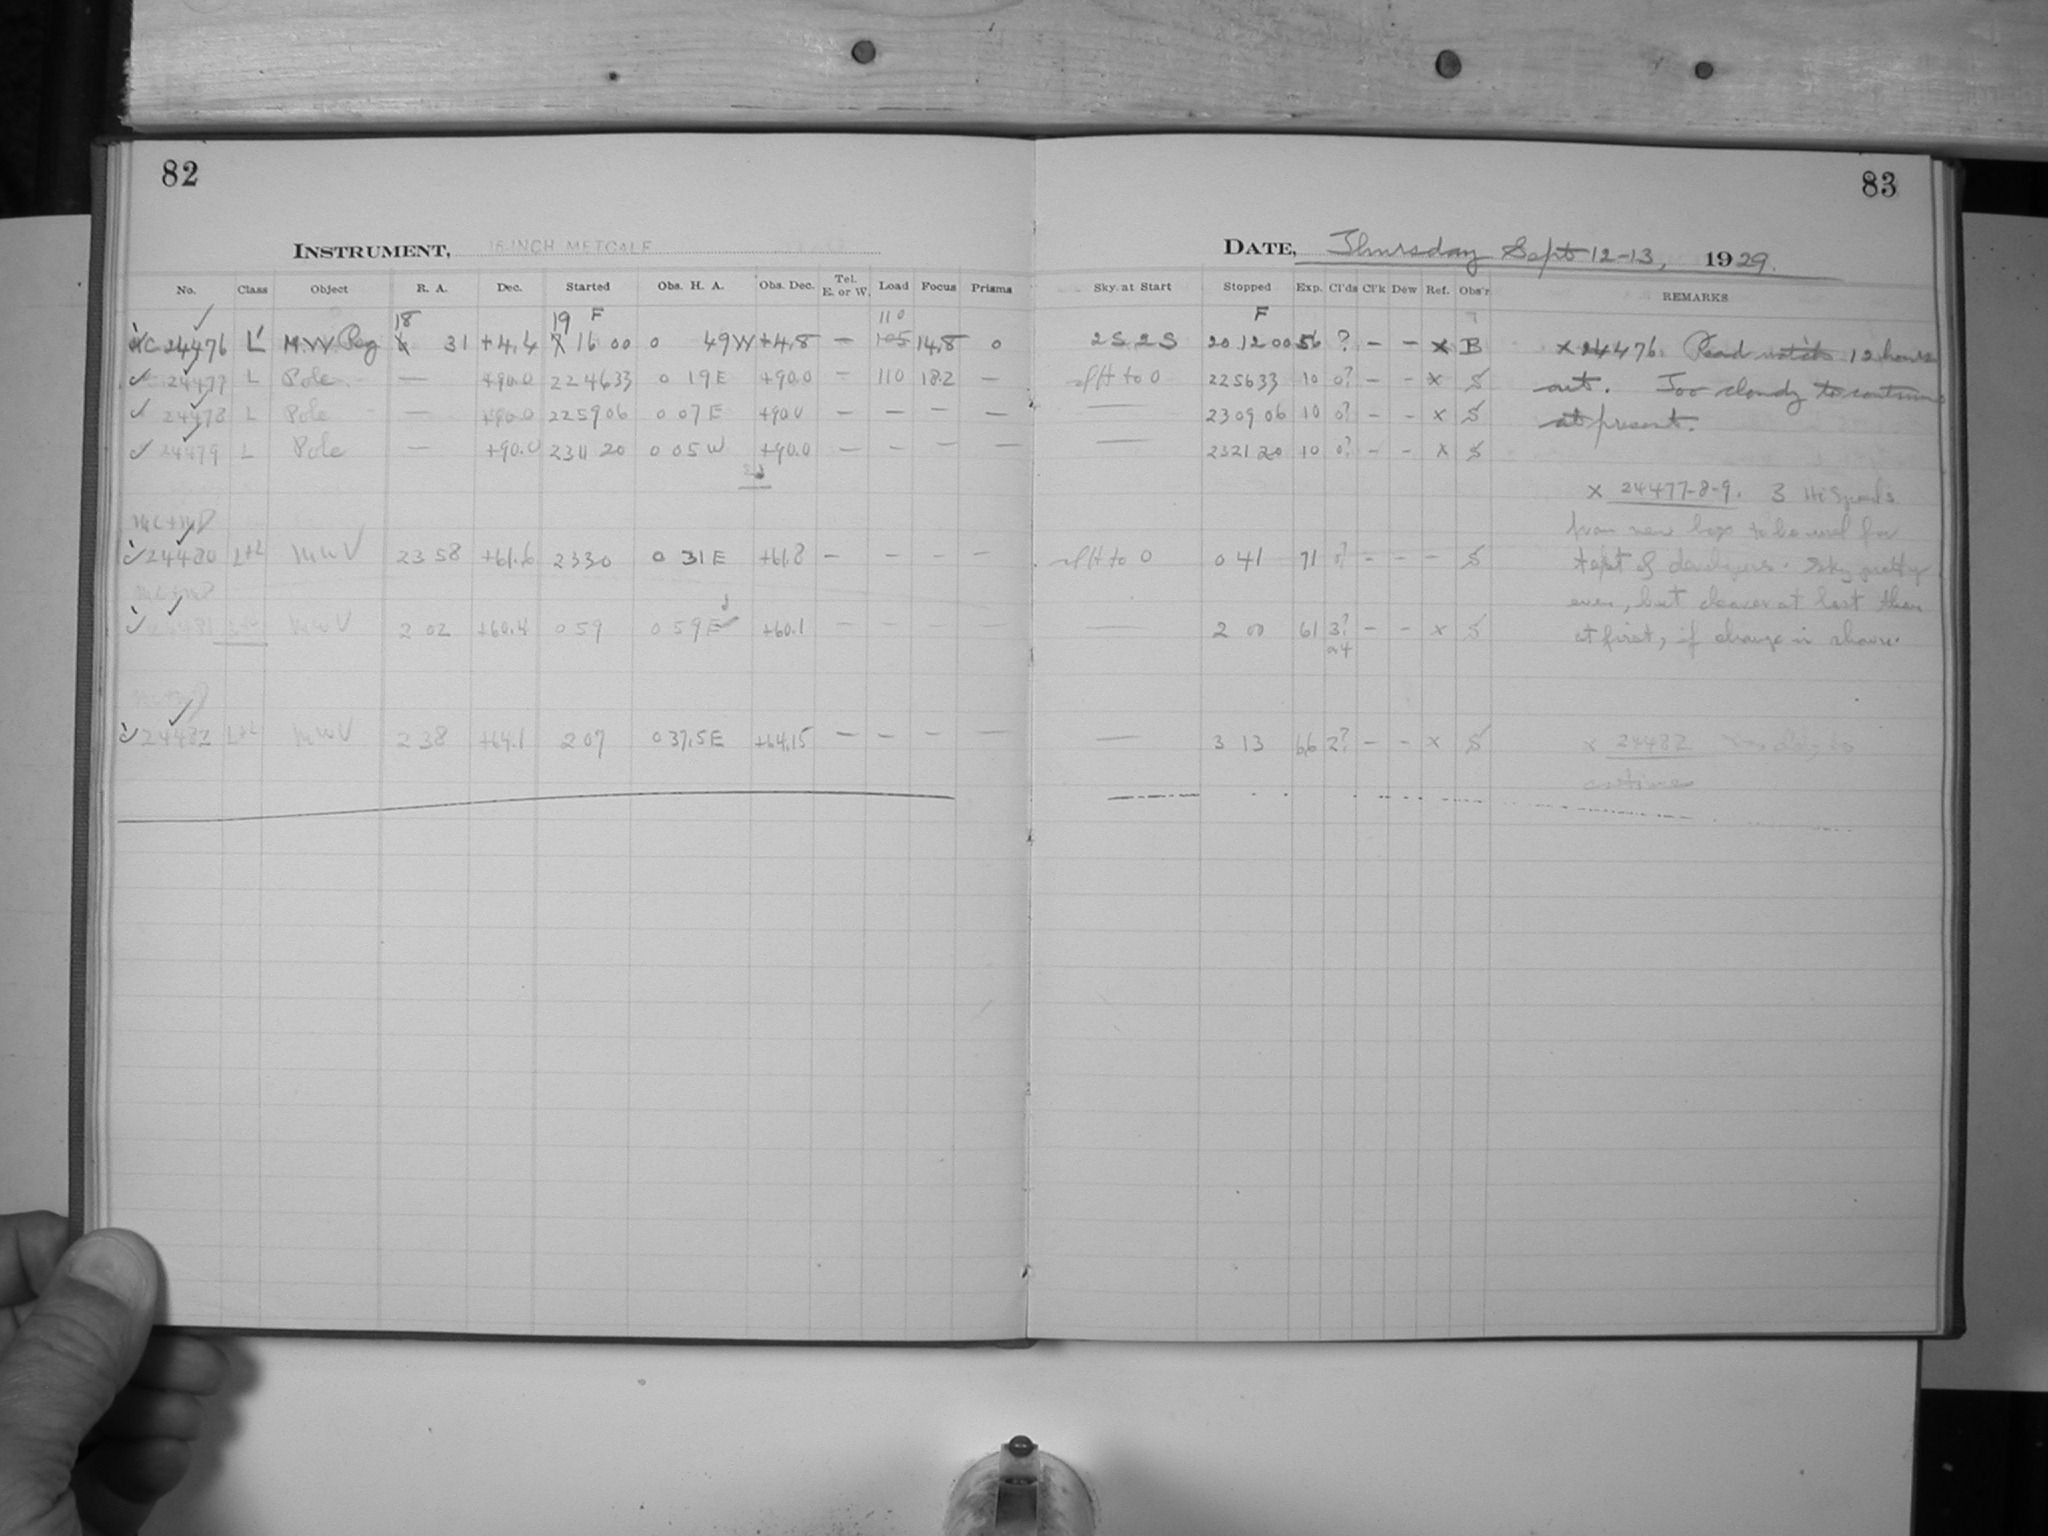 82
83
INSTRUMENT, 16-INCH METCALF
DATE, Thursday Sept 12-13, 1929.
No. Class Object R. A. Dec. Started Obs. H. A. Obs. Dec. Tel. E. or W. Load Focus Prisms Sky at Start Stopped Exp. Cl'ds Cl'k Dew Ref. Obs'r REMARKS
18 19 F 110 F
MC 24476 L M.W. 31 +4.4 16 00 0 49W +4.8 — 105 14.8 0 2S 2S 20 12 00 56 ? — — x B x 24476. Read watch 12 hours
24477 L Pole — +90.0 22 46 33 0 19E +90.0 — 110 18.2 — to 0 22 56 33 10 0? — — x S out. Too cloudy to continue
24478 L Pole — +90.0 22 59 06 0 07E +90.0 — — — — — 23 09 06 10 0? — — x S at present.
24479 L Pole — +90.0 23 11 20 0 05W +90.0 — — — — — 23 21 20 10 0? — — x S
x 24477-8-9. 3 HiSpeeds
from new box to be used for
24480 L+L MWV 23 58 +61.6 23 30 0 31E +61.8 — — — — to 0 0 41 71 0? — — — S test of developers. Sky pretty
even, but clearer at last than
24481 L+L MWV 2 02 +60.4 0 59 0 59E +60.1 — — — — — 2 00 61 3? — — x S at first, if change is shown.
or 4
24482 L+L MWV 2 38 +64.1 2 07 0 37.5E +64.15 — — — — — 3 13 66 2? — — x S x 24482 to
continue